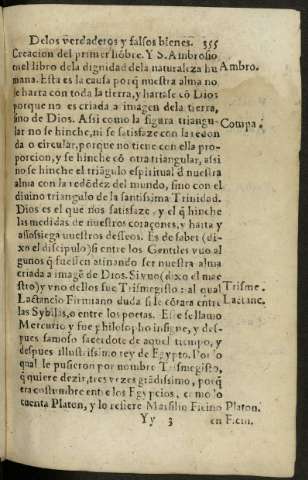 De los verdaderos y falsos bienes. 355
Creacion del primer hõbre. Y S. Ambrosio
en el libro de la dignidad de la naturaleza hu Ambro.
mana. Esta es la causa porq̃ nuestra alma no
se harta con toda la tierra, y hartase cõ Dios
porque no es criada a imagen dela tierra,
sino de Dios. Assi como la figura triangu- Compa.
lar no se hinche, ni se satisfaze con la redon
da o circular, porque no tiene con ella pro-
porcion, y se hinche cõ otra triangular, assi
no se hinche el triãgulo espiritual d̃ nuestra
alma con la redõdez del mundo, sino con el
diuino triangulo de la santissima Trinidad.
Dios es el que nos satisfaze, y el q̃ hinche
las medidas de nuestros coraçones, y harta y
assossiega nuestros desseos. Es de saber (di-
xo el discipulo) si entre los Gentiles vuo al
gunos q̃ fuessen atinando ser nuestra alma
criada a imagẽ de Dios. Si vuo (dixo el mae
stro) y vno dellos fue Trismegisto: al qual Trisme.
Lactancio Firmiano duda si le cõtara entre Lactanc.
las Sybillas, o entre los poetas. Este se llamo
Mercurio y fue philosopho insigne, y des-
pues famoso sacerdote de aquel tiempo, y
despues illustrissimo rey de Egypto. Por lo
qual le pusieron por nombre Trismegisto,
q̃ quiere dezir, tres vezes grãdissimo, porq̃
era costumbre entre los Egypcios, como lo
cuenta Platon, y lo refiere Marsilio Ficino Platon.
Yy 3 en Ficin.